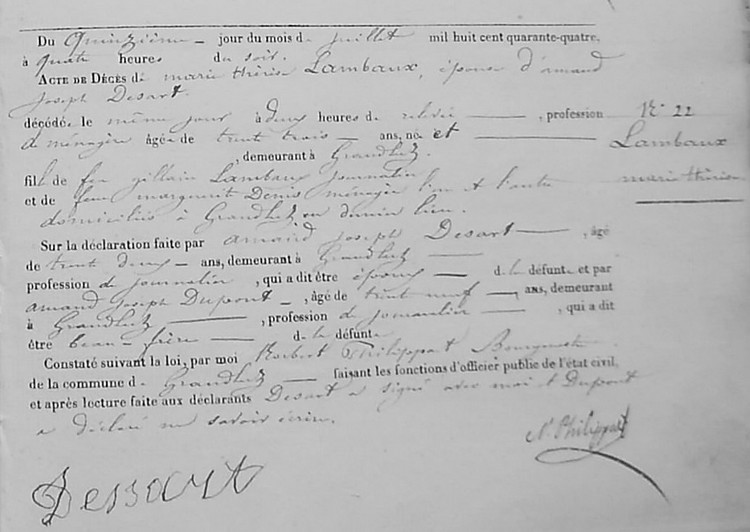 Du Quinzième jour du mois de juillet mil huit cent quarante-quatre,
à quatre heures du soir.
ACTE DE DÉCÈS de marie thérèse Lambaux, épouse d'armand
joseph Desart.
décédée le même jour à deux heures de relevée, profession
de ménagère âgée de trente trois ans, née et
, demeurant à Grandlez.
fille de feu gillain Lambaux journalier
et de feue marguerite Denis ménagère l'un et l'autre
domiciliés à Grandlez en dernier lieu.
N° 22
Lambaux
marie thérèse
Sur la déclaration faite par armand joseph Desart, âgé
de trente deux ans, demeurant à Grandlez
profession de journalier, qui a dit être époux de la défunte et par
armand joseph Dupont, âgé de trente neuf ans, demeurant
à Grandlez, profession de journalier, qui a dit
être beau frère de la défunte
Constaté suivant la loi, par moi Norbert Philippart Bourgmestre
de la commune de Grandlez faisant les fonctions d'officier public de l'état civil,
et après lecture faite aux déclarants Desart a signé avec moi et Dupont
a déclaré ne savoir écrire.
N. Philippart
Dessart